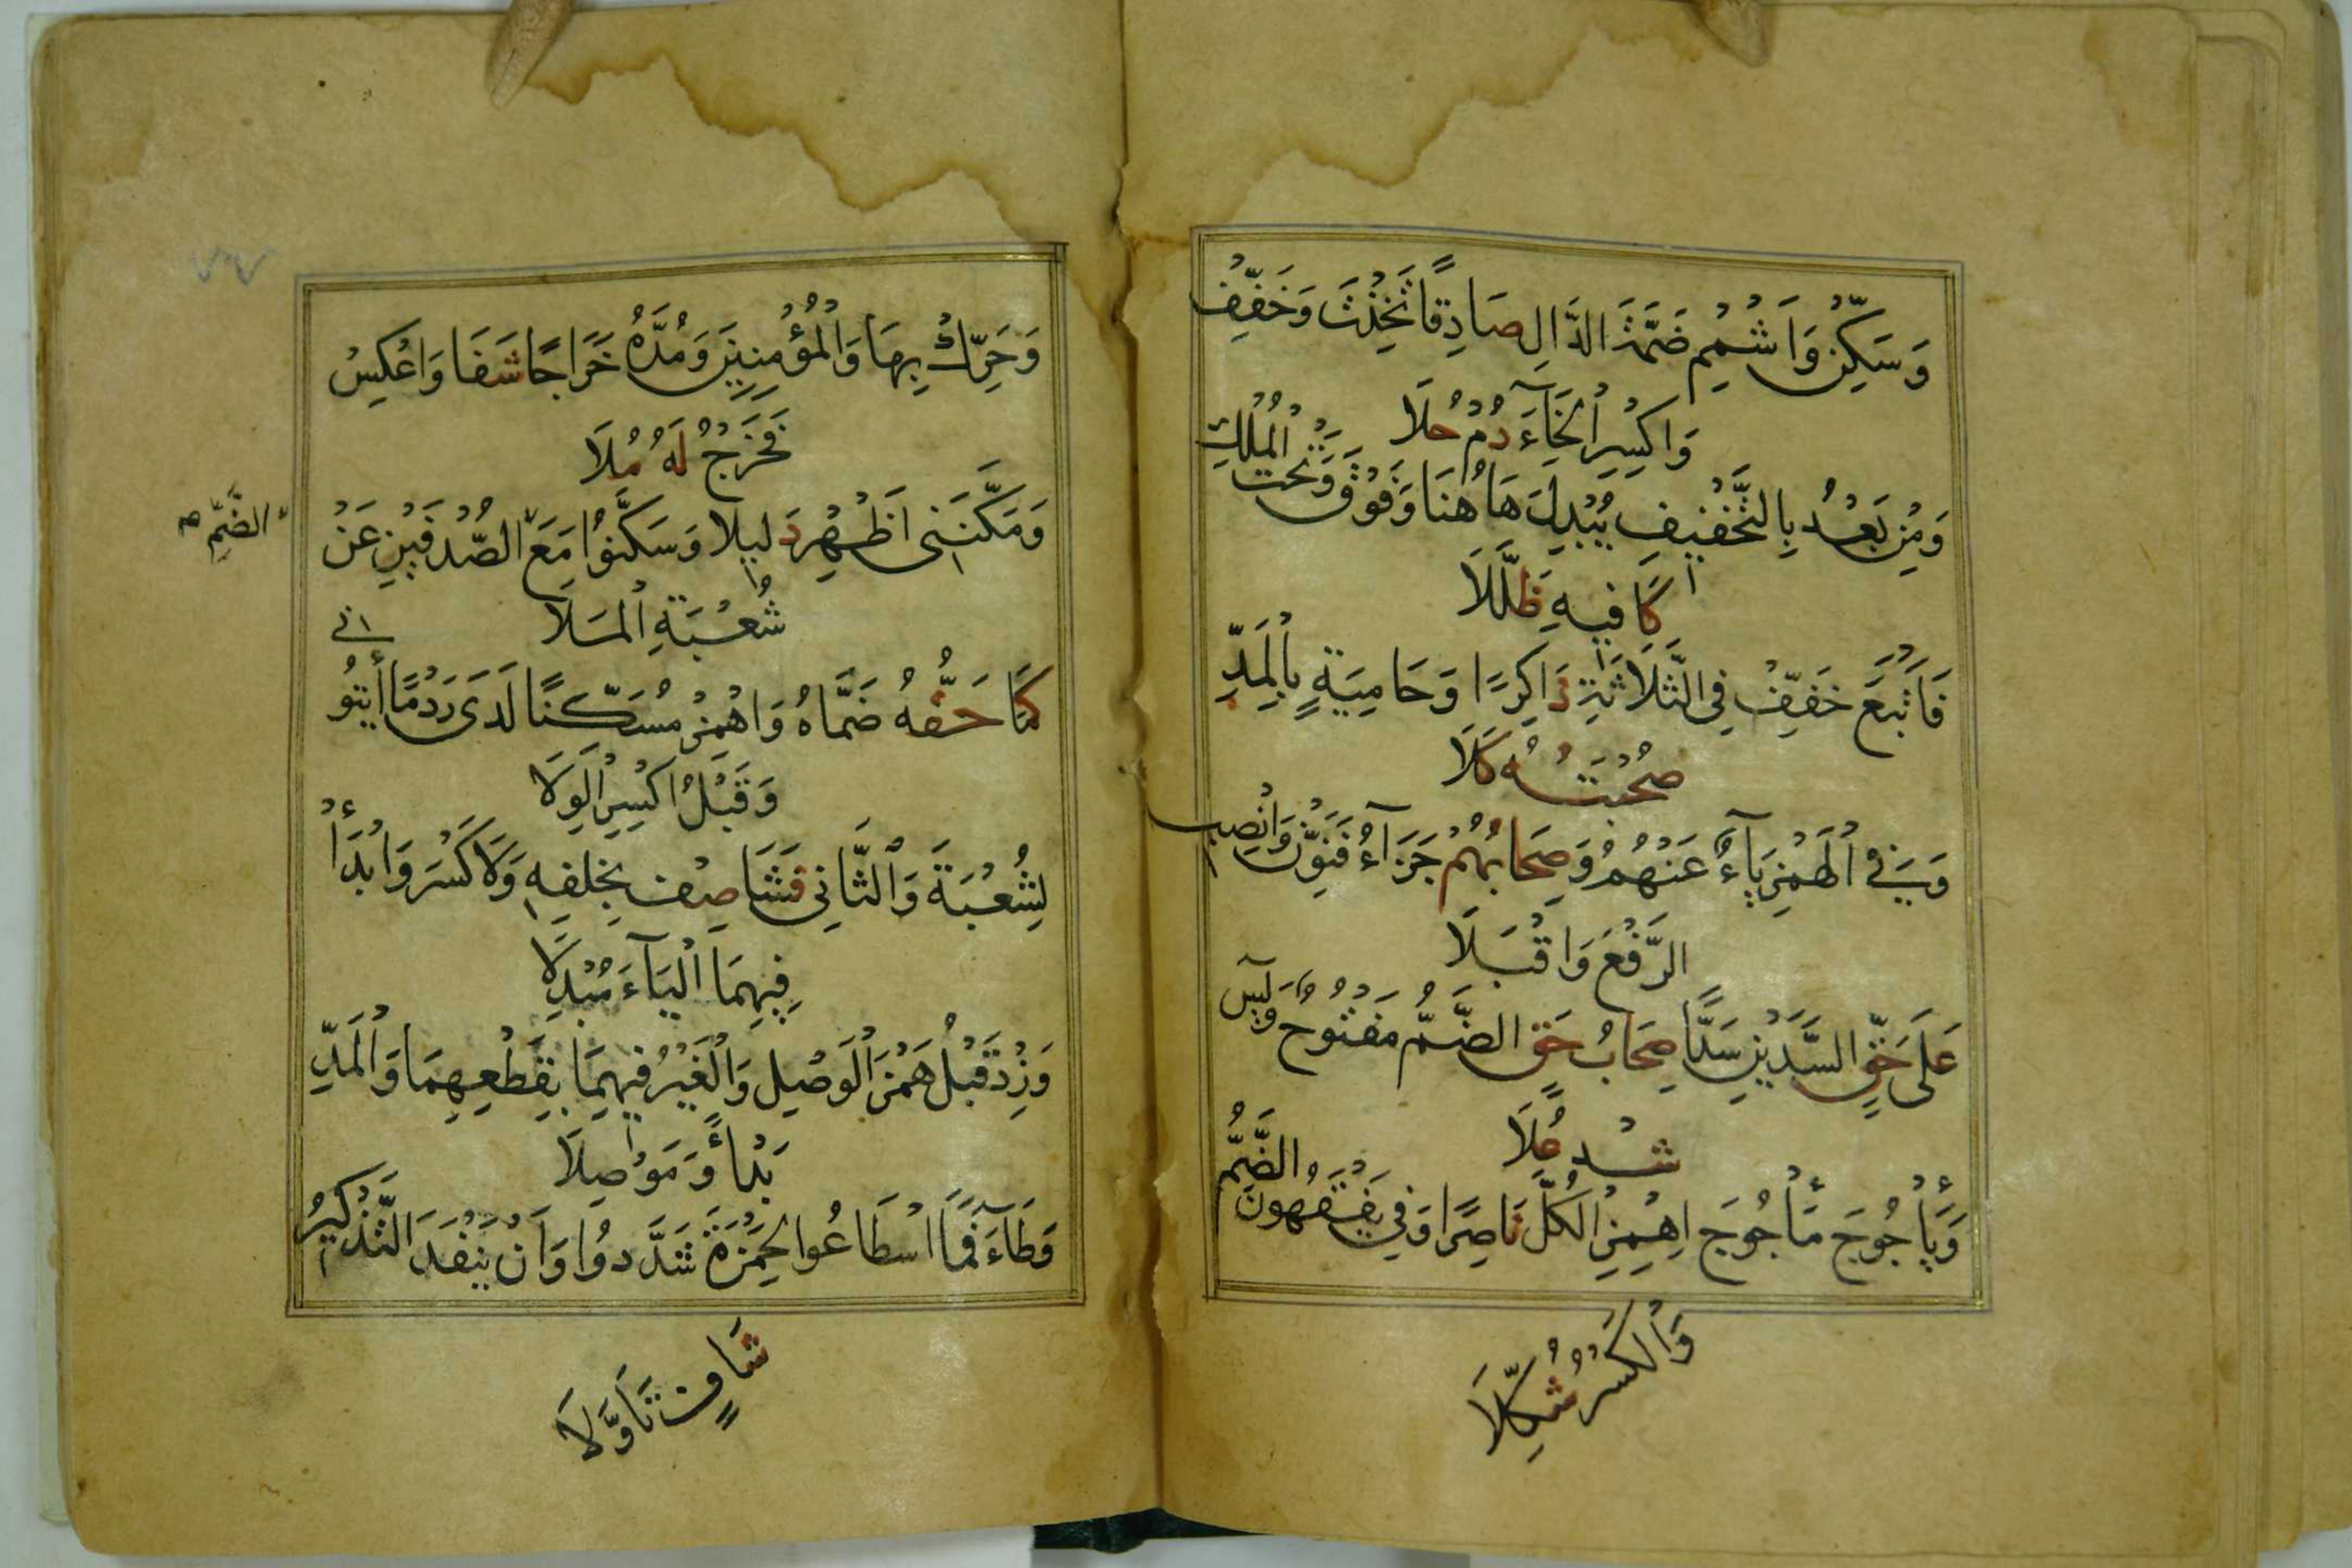 وَسَكِّنْ وَاَشْمِمْ ضَمَّةَ الدَّالِ صَادِقًا تَخِذْتَ وَخَفِّفْ
وَاكْسِرِ الْخَآءَ دُمْ حُلَا
وَمِنْ بَعْدُ بِالتَّخْفِيفِ يُبْدِلَ هَاهُنَا وَفَوْقَ وَتَحْتَ الْمُلْكِ
كَافِيهِ ظَلَّلَا
فَاَتْبَعَ خَفِّفْ فِي الثَّلَاثَةِ ذَاكِرًا وَحَامِيَةٍ بِالْمَدِّ
صُحْبَتُهُ كَلَا
وَفِي الْهَمْزِ يَآءٌ عَنْهُمُ وَصِحَابُهُمْ جَزَآءُ فَنَوِّنْ وَانْصِبِ
الرَّفْعَ وَاقْبَلَا
عَلَى حَقٍّ السَّدَّيْنِ سَدًّا صِحَابُ حَقٍّ الضَّمُّ مَفْتُوحٌ وَيٰسٓ
شِدْ عُلَا
وَيَأْجُوجَ مَأْجُوجَ اهْمِزِ الْكُلَّ نَاصِرًا وَفِي يَفْقَهُونَ الضَّمُّ
وَالْكَسْرُ شُكِّلَا
وَحَرِّكْ بِهَا وَالْمُؤْمِنِينَ وَمُدَّهُ خَرَاجًا شَفَا وَاعْكِسْ
فَخَرْجُ لَهُ مُلَا
وَمَكَّنَنِى اَظْهِرْ دَلِيلًا وَسَكَّنُوا مَعَ الصُّدْفَيْنِ عَنْ
الضَّمِّ
شُعْبَةِ الْمَلَا
كَمَا حَقُّهُ ضَمَّاهُ وَاهْمِزْ مُسَكِّنًا لَدَى رَدْمًا أْيتُو
نِى
وَقَبْلُ اكْسِرِ الْوِلَا
لِشُعْبَةَ وَالثَّانِى فَشَا صِفْ بِخُلْفِهِ وَلَا كَسْرَ وَابْدَأْ
فِيهِمَا الْيَآءَ مُبْدِلَا
وَزِدْ قَبْلُ هَمْزَ الْوَصْلِ وَالْغَيْرُ فِيهِمَا بِقَطْعِهِمَا وَالْمَدِّ
بَدْأً وَمَوْصِلَا
وَطَآءَ فَمَا اسْطَاعُوا لِحَمْزَةَ شَدَّدُوا وَاَنْ يَنْفَدَ التَّذْكِيرُ
شَافٍ تَاَوَّلَا